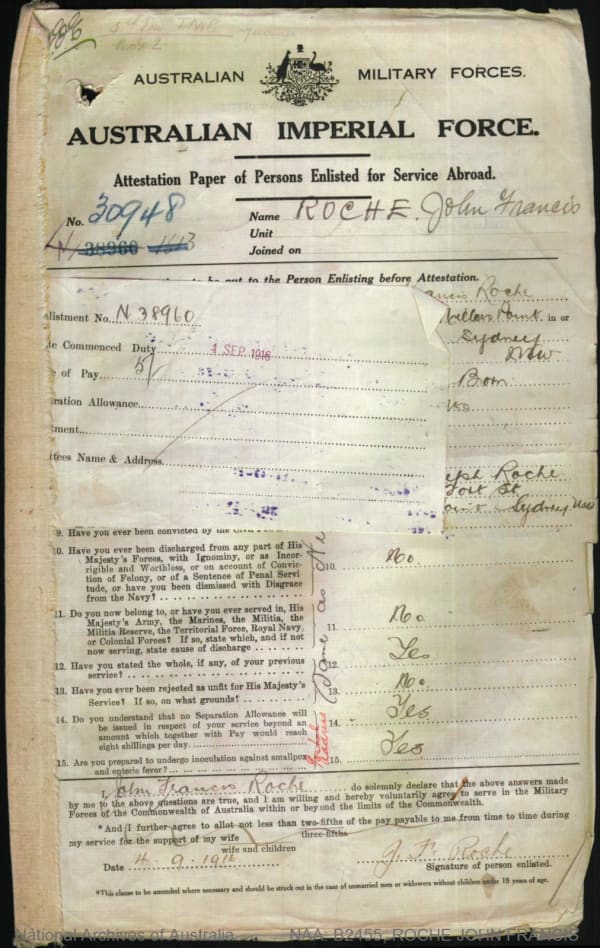 AUSTRALIAN MILITARY FORCES.
AUSTRALIAN IMPERIAL FORCE.
Attestation Paper of Persons Enlisted for Service Abroad.
No. 30948
N 38960
Name ROCHE. John Francis
Unit
Joined on
to be put to the Person Enlisting before Attestation.
ancis Roche
listment No. N 38960
Millers Point in or
Sydney
NSW
te Commenced Duty 4 SEP 1916
e of Pay 5/
Born
ration Allowance
No
tment
ttees Name & Address
eph Roche
Fort St
Sydney NSW
9. Have you ever been convicted by the Civil
10. Have you ever been discharged from any part of His
Majesty's Forces, with Ignominy, or as Incor-
rigible and Worthless, or on account of Convic-
tion of Felony, or of a Sentence of Penal Servi
tude, or have you been dismissed with Disgrace
from the Navy?
10. No.
11. Do you now belong to, or have you ever served in, His
Majesty's Army, the Marines, the Militia, the
Militia Reserve, the Territorial Force, Royal Navy,
or Colonial Forces? If so, state which, and if not
now serving, state cause of discharge
11. No
12. Have you stated the whole, if any, of your previous
service?
12. Yes
13. Have you ever been rejected as unfit for His Majesty's
Service? If so, on what grounds?
13. No
14. Do you understand that no Separation Allowance will
be issued in respect of your service beyond an
amount which together with Pay would reach
eight shillings per day.
14. Yes
15. Are you prepared to undergo inoculation against smallpox
and enteric fever?
15. Yes
Same as
Address
I John Francis Roche do solemnly declare that the above answers made
by me to the above questions are true, and I am willing and hereby voluntarily agree to serve in the Military
Forces of the Commonwealth of Australia within or beyond the limits of the Commonwealth.
*And I further agree to allot not less than two-fifths of the pay payable to me from time to time during
three-fifths
my service for the support of my wife
wife and children
Date 4.9.1916
J. F. Roche
Signature of person enlisted.
*This clause to be amended where necessary and should be struck out in the case of unmarried men or widowers without children under 18 years of age.
National Archives of Australia
NAA: B2455, ROCHE JOHN FRANCIS